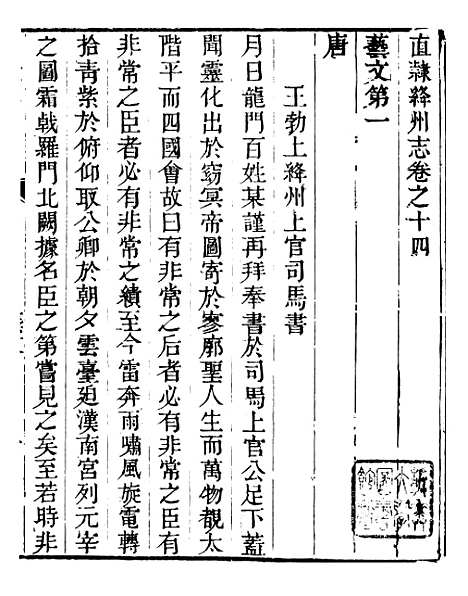 直隷絳州志卷之十四
藝文第一
唐
王勃上絳州上官司馬書
月日龍門百姓某謹再拜奉書於司馬上官公足下蓋
聞靈化出於窈冥帝圖寄於寥廓聖人生而萬物覩太
階平而四國會故曰有非常之后者必有非常之臣有
非常之臣者必有非常之績至今雷奔雨嘯風旋電轉
拾青紫於俯仰取公卿於朝夕雲臺廹漢南宮列元宰
之圖霜戟羅門北闕據名臣之第嘗見之矣至若時非